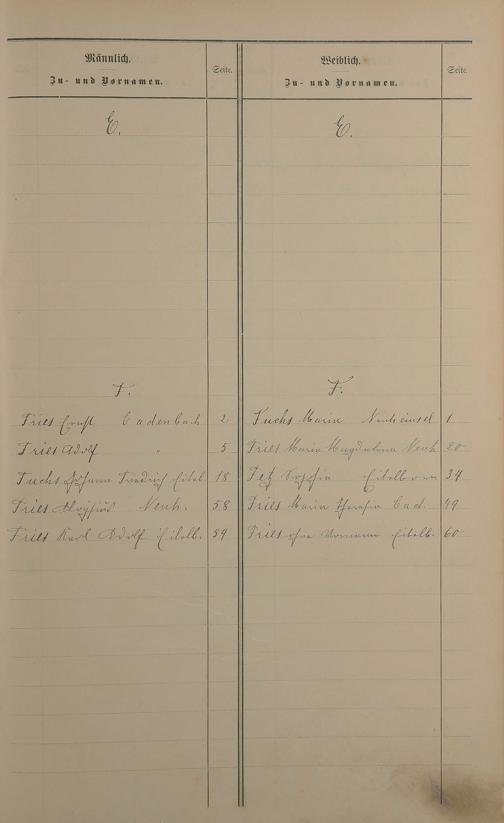 Männlich.
Zu- und Vornamen.
Seite.
E.
F.
Fries Ernst Cadenbach 2
Fries Adolf " 5
Fuchs Johann Friedrich Eitel. 18
Fries Aloysius Neuh. 58
Fries Karl Adolf Eitelb. 59
Weiblich.
Zu- und Vornamen.
Seite.
E.
F.
Fuchs Maria Neuhäusel 1
Fries Maria Magdalena Neuh 20
Fetz Sophia Eitelborn 34
Fries Maria Theresia Cad. 49
Fries ohne Vornamen Eitelb. 60